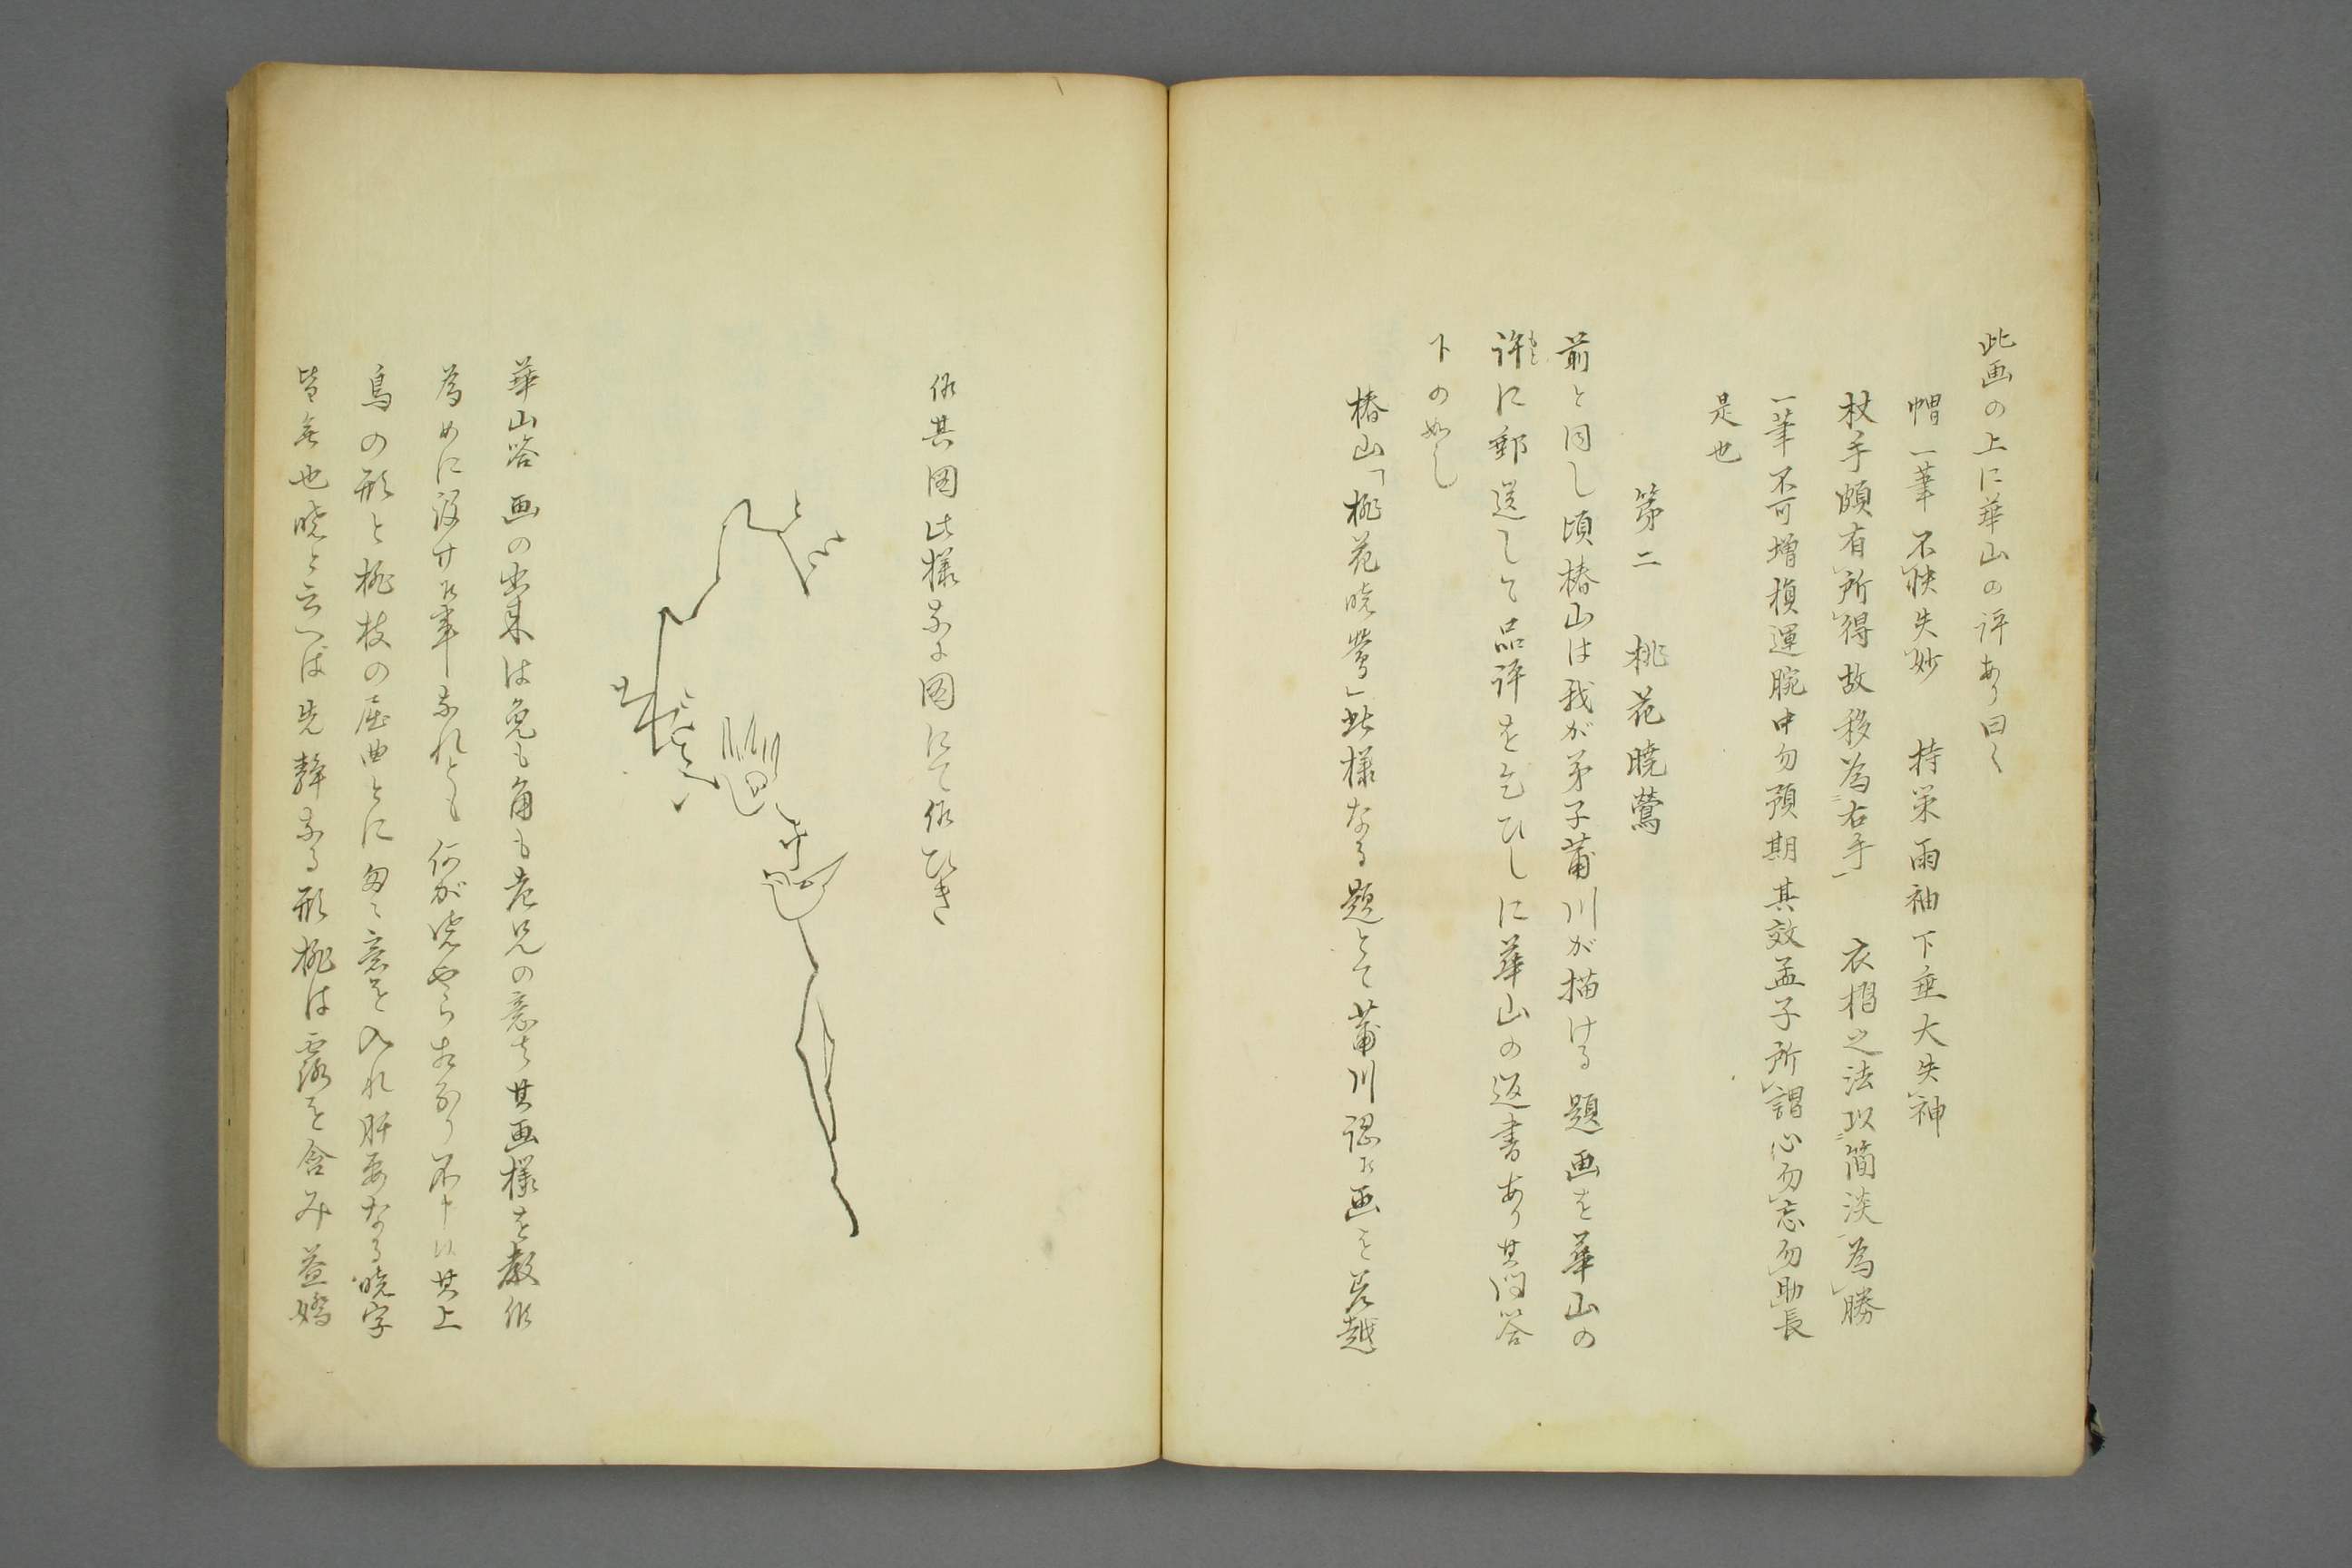 此画の上に華山の評あり曰く
帽一筆不快失妙 持傘雨袖下垂大失神
杖手頗有所得故移為右手 衣褶之法以簡淡為勝
一筆不可増損運腕中勿預期其效孟子所謂心勿忘勿助長
是也
第二 桃花暁鶯
前と同し頃椿山は我が弟子蒲川が描ける題画を華山の
許に郵送して品評を乞ひしに華山の返書あり其問答
下の如し
椿山「桃花暁鶯」此様なる題とて蒲川認候画を差越
候其図此様なる図にて候ひき
華山答 画の出来は兎も角も老兄の意ニて其画様を教候
為めに設け候事なれとも 何が暁やら相分り不申候其上
鳥の形と桃枝の屈曲とに匈々意を入れ肝要なる暁字
皆無也暁と云へば先静なる形桃は露を含み益嬌